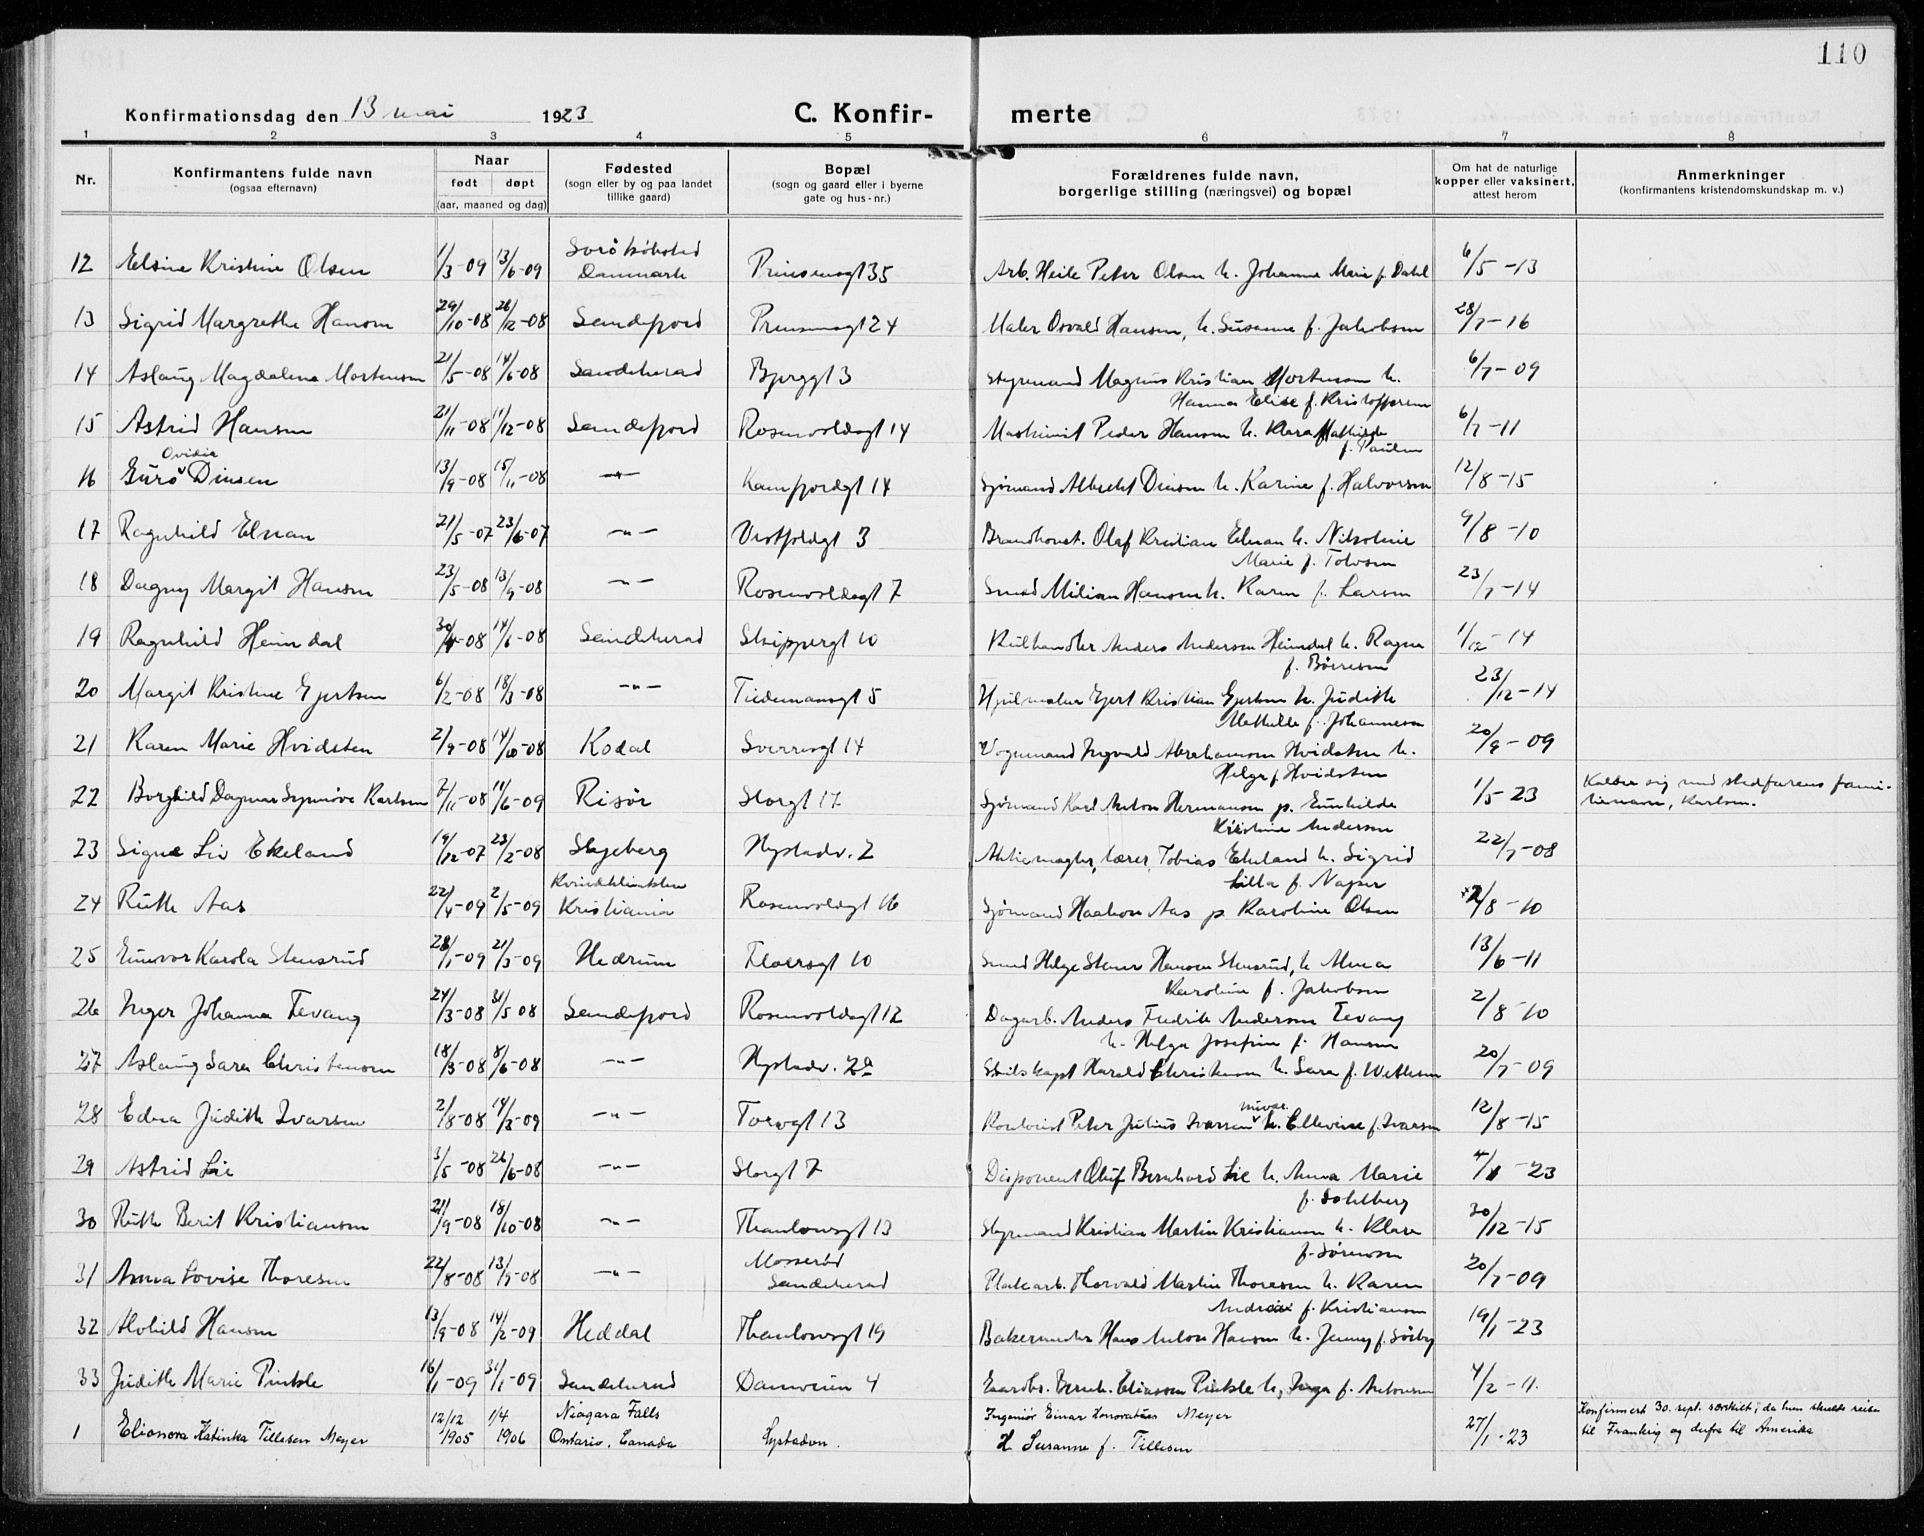 110
Konfirmationsdag den 13 mai 1923 C. Konfir- merte
1 2 3 4 5 6 7 8
Nr. Konfirmantens fulde navn (ogsaa efternavn) Naar født døpt (aar, maaned og dag) Fødested (sogn eller by og paa landet tillike gaard) Bopæl (sogn og gaard eller i byerne gate og hus-nr.) Forældrenes fulde navn, borgerlige stilling (næringsvei) og bopæl Om hat de naturlige kopper eller vaksinert, attest herom Anmerkninger (konfirmantens kristendomskundskap m. v.)
12 Elsine Kristine Olsen 1/3-09 13/6-09 Danmark Prinsensgt 35 Arb. Heile Peter Olsen h. Johanne Marie f. Dahl 6/5-13
13 Sigrid Margrethe Hansen 29/10-08 26/12-08 Sandefjord Prinsensgt 24 Maler Osvald Hansen, h. Susanne f. Jakobsen 28/7-16
14 Aslaug Magdalena Mortensen 21/5-08 14/6-08 Sandeherad Bjerggt 3 Styrmand Magnus Kristian Mortensen h.
Hanna Elise f. Kristoffersen 6/7-09
15 Astrid Hansen 21/11-08 11/12-08 Sandefjord Rosenvoldsgt 14 Maskinist Peder Hansen h. Klara Mathilde
f. Paulsen 6/7-11
16 Guro Ovidia Dinsen 13/9-08 15/11-08 -"- Kamfjordgt 14 Sjømand Albrecht Dinsen h. Karine f. Halvorsen 12/8-15
17 Ragnhild Elnan 21/5-07 23/6-07 -"- Vestfoldgt 3 Brandkonst. Olaf Kristian Elnan h. Nikoline
Marie f. Tolvsen 9/8-10
18 Dagny Margit Hansen 23/5-08 13/9-08 -"- Rosenvoldsgt 7 Smed Milian Hansen h. Karen f. Larsen 23/7-14
19 Ragnhild Heimdal 30/4-08 14/6-08 Sandeherad Skippergt 10 Kulhandler Anders Andersen Heimdal h. Ragna
f. Børresen 1/12-14
20 Margit Kristine Gjertsen 6/2-08 18/3-08 -"- Tidemansgt 5 Hjulmaker Gjert Kristian Gjertsen h. Judith
Mathilde f. Johannesen 23/12-14
21 Karen Marie Hvidsten 2/9-08 14/10-08 Kodal Sverresgt 14 Vognmand Ingvald Abrahamsen Hvidsten h.
Helga f. Hvidsten 20/9-09
22 Borghild Dagmar Synnøve Karlsen 7/11-08 11/6-09 Risør Storgt 17 Sjømand Karl Anton Hermansen p. Gunhilde
Kristine Andersen 1/5 23 Kalder sig med stedfarens fami-
lienavn, Karlsen.
23 Signe Liv Ekeland 19/12-07 23/2-08 Skjeberg Nystadv. 2 Aktiemægler, lærer, Tobias Ekeland h. Sigrid
Lilla f. Napser 22/7-08
24 Ruth Aas 22/4-09 2/5-09 Kvindeklinikken
Kristiania Rosenvoldgt 16 Sjømand Haakon Aas p. Karoline Olsen 2/8-10
25 Gunvor Karola Stensrud 28/1-09 21/3-09 Hedrum Floersgt 10 Smed Helge Stener Hansen Stensrud, h. Alma
Karoline f. Jakobsen 13/6-11
26 Inger Johanna Fevang 24/3-08 31/5 08 Sandefjord Rosenvoldsgt 12 Dagarb. Anders Fredrik Andersen Fevang
h. Helga Josefine f. Hansen 2/8-10
27 Aslaug Sara Christensen 18/3-08 8/6-08 -"- Nystadv. 2a Skibskapt Harald Christensen h. Sara f. Wettesen 20/7-09
28 Edna Judith Ivarsen 2/8-08 14/3-09 -"- Torvgt 13 Peter Julius Ivarsen h. Ellevine f. Ivarsen 12/8-15
29 Astrid Lie 3/5-08 26/6-08 -"- Storgt 7 Disponent Oluf Bernhard Lie h. Anna Marie
f. Sohlberg 4/1-23
30 Ruth Berit Kristiansen 21/9-08 18/10-08 -"- Thaulowsgt 13 Styrmand Kristian Martin Kristiansen h. Klara
f. Sørensen 30/12-15
31 Anna Lovise Thoresen 22/8-08 13/9-08 -"- Mosserød
Sandeherad Platearb. Thorvald Martin Thoresen h. Karen
Andrea f. Kristiansen 20/7-09
32 Alvhild Hansen 13/9-08 14/2-09 Heddal Thaulowsgt 19 Bakermester Hans Anton Hansen h. Jenny f. Sørby 19/1-23
33 Judith Marie Pinksle 16/1-09 31/1-09 Sandeherad Damveien 4 Gaardbr. Bernh. Eliassen Pinksle h. Inga f. Antonsen 4/2-11.
1 Elionora Katinka Tillesen Meyer 12/12 1905 1/4 1906 Niagara Falls
Ontario, Canada Nystadvn. Ingeniør Einar Honoratus Meyer
H. Susanne f. Tillesen 27/1-23 Konfirmert 30. sept. særskilt, da hun skulde reise
til Frankrig og derfra til Amerika